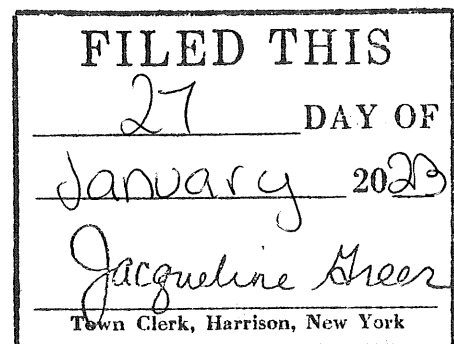 FILED THIS
27
DAY OF
January 2023
Jacqueline Greer
Town Clerk, Harrison, New York